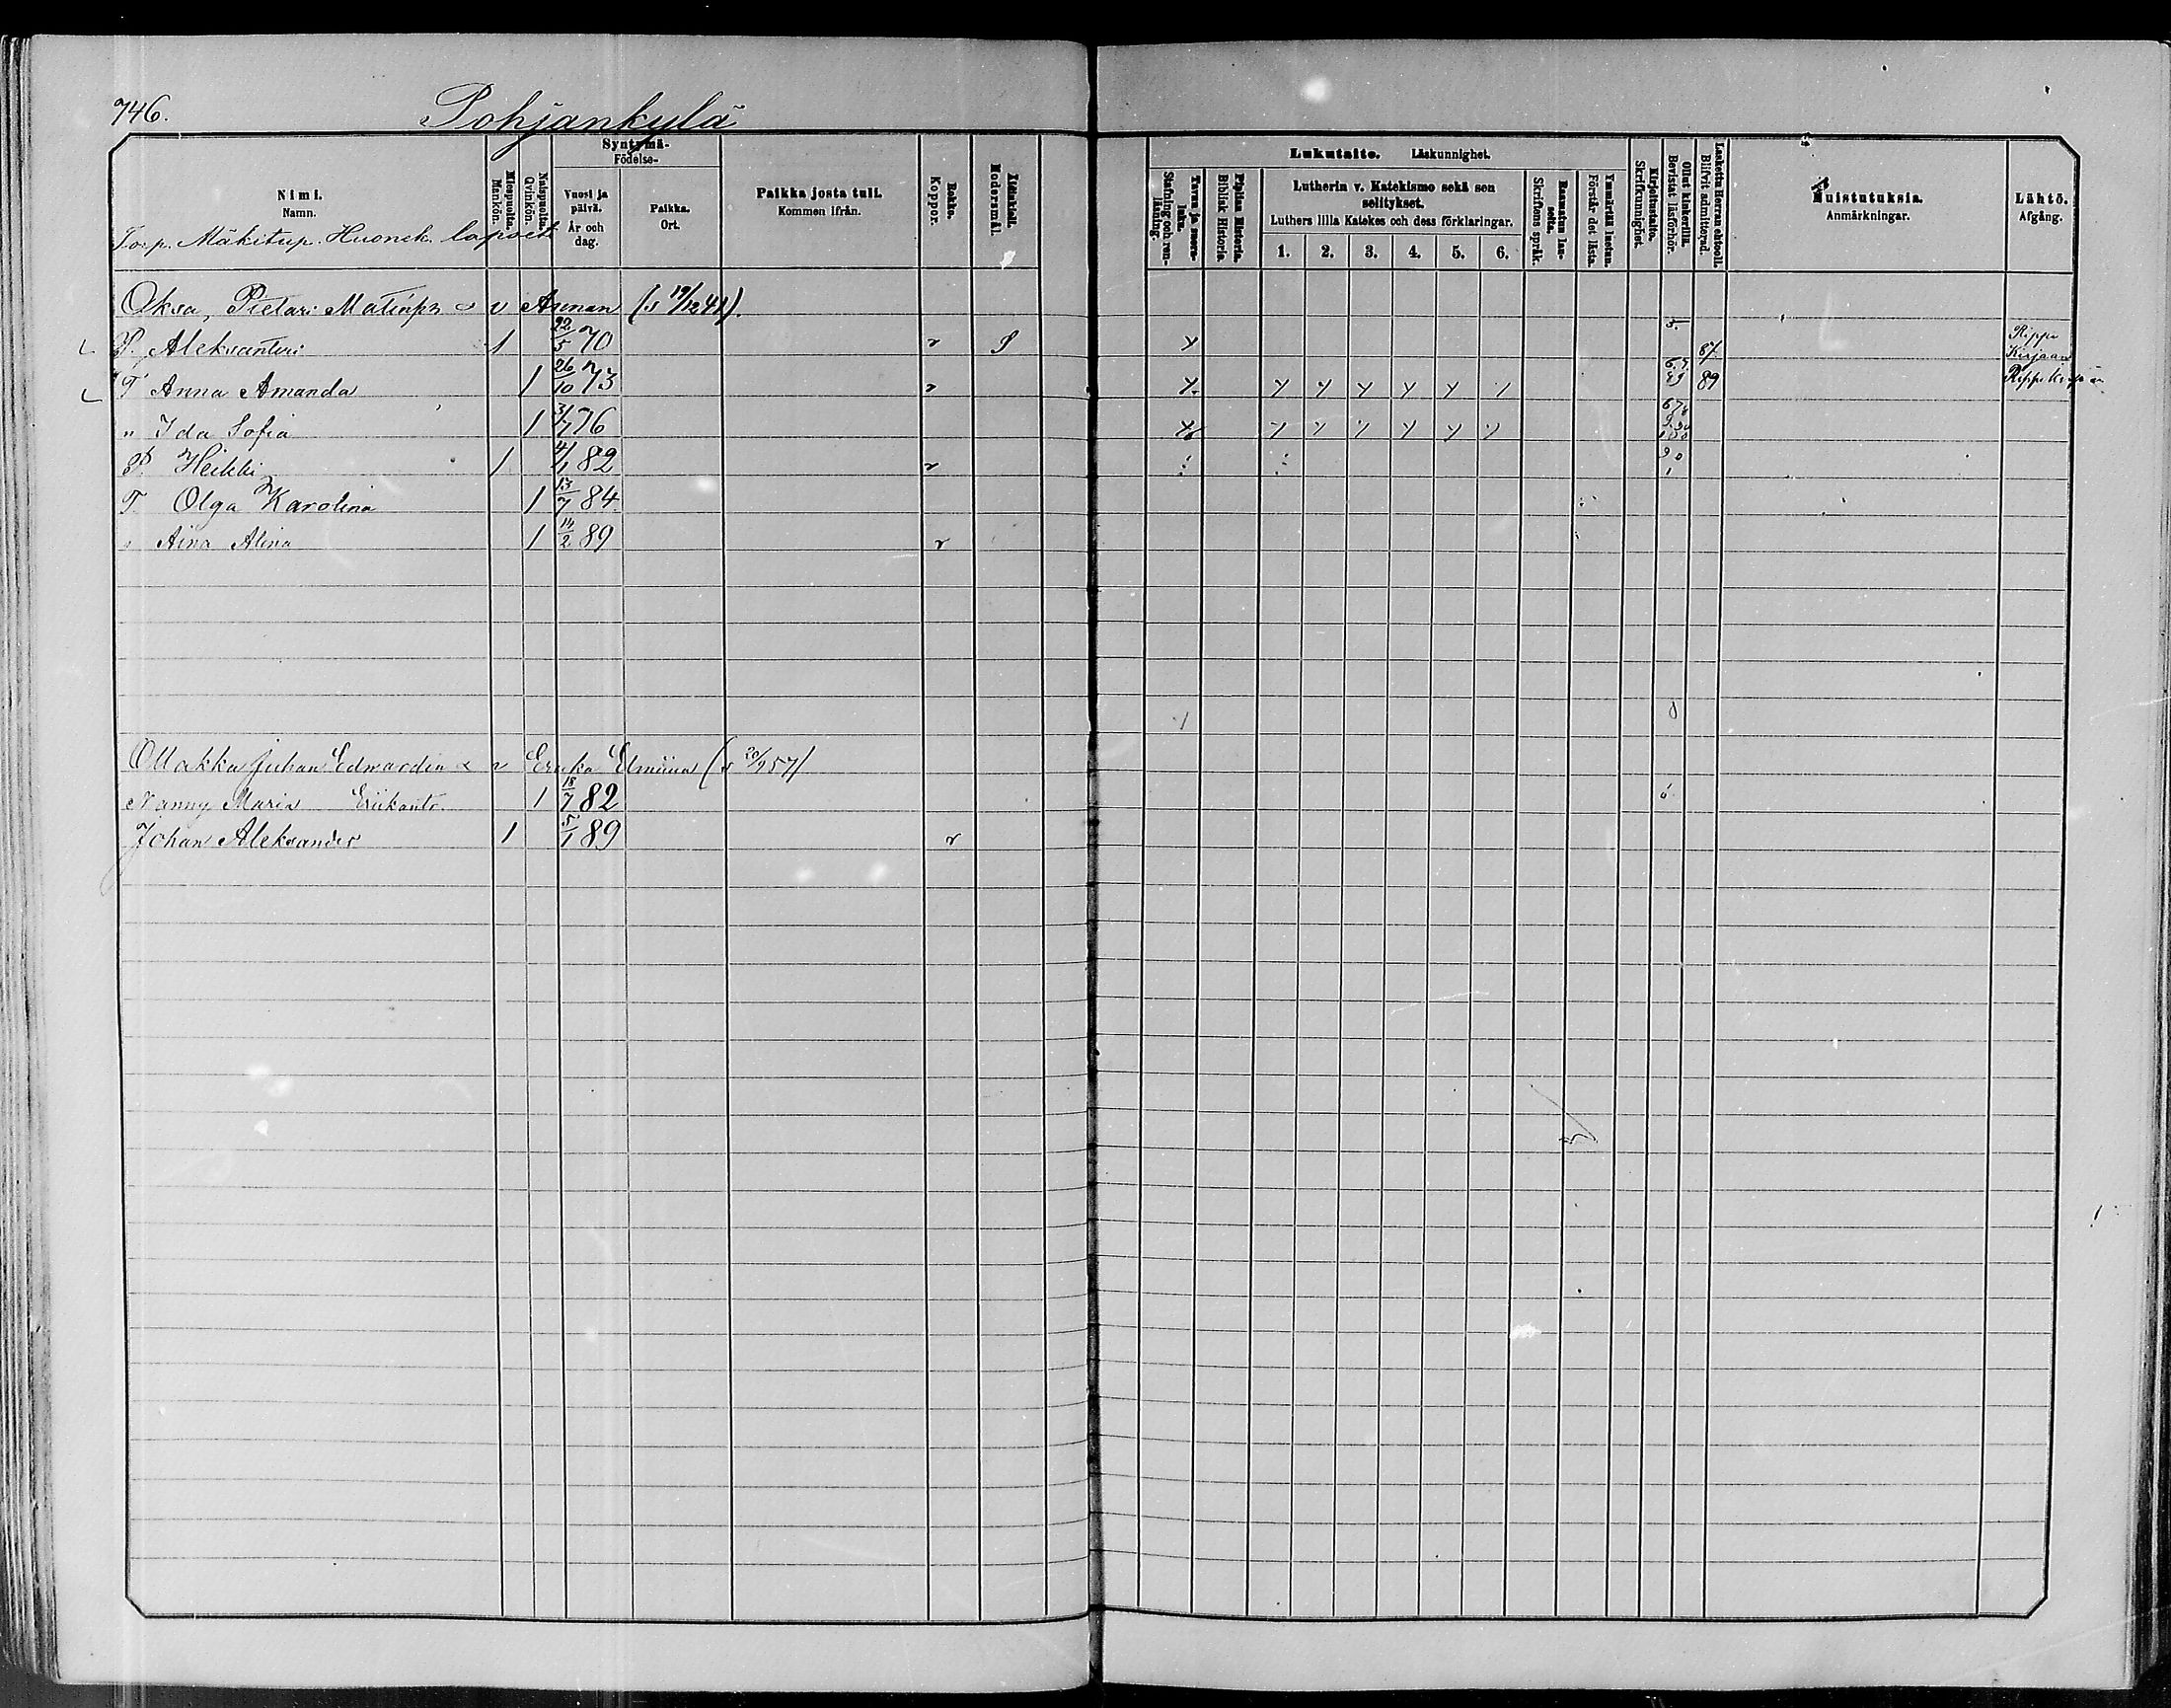 746.
Pohjankylä
Nimi.
Namn.
Torp. Mäkitup. Huonek. lapset
Miespuolia.
Mankön.
Naispuolia.
Qvinkön.
Syntymä-
Födelse-
Vuosi ja
päivä.
År och
dag.
Paikka.
Ort.
Paikka josta tuli.
Kommen ifrån.
Rokko.
Koppor.
Äidinkieli.
Modersmål.
Lukutaito. Läskunnighet.
Tavuu ja suora-
luku.
Stafning och ren-
läsning.
Piplian Historia.
Biblisk Historie.
Lutherin v. Katekismo sekä sen
selitykset.
Luthers lilla Katekes och dess förklaringar.
1. 2. 3. 4. 5. 6.
Raamatun lau-
seita.
Skriftens språk.
Ymmärtää luetun.
Förstår det lästa.
Kirjoitustaito.
Skrifkunnighet.
Ollut kinkerillä.
Bevistat läsförhör.
Laskettu Herran ehtool.
Blifvit admitterad.
Muistutuksia.
Anmärkningar.
Lähtö.
Afgång.
Oksa, Pietari Matinp. v Annan (s 19/12 41).
P. Aleksanteri 1 22/5 70 r S y 87 Rippi
Kirjaan
T Anna Amanda 1 26/10 73 r y y y y y y y 89 89 Rippikirjaan
" Ida Sofia 1 3/7 76 y y y y y y y
P Heikki 1 4/1 82 r
T Olga Karolina 1 13/7 84
" Aina Alina 1 14/2 89 r
Ollakka Juhan Edwardin v Eruka Elmiina (s 20/9 57)
Nanny Maria 1 18/7 82
Johan Aleksander 1 5/1 89 r